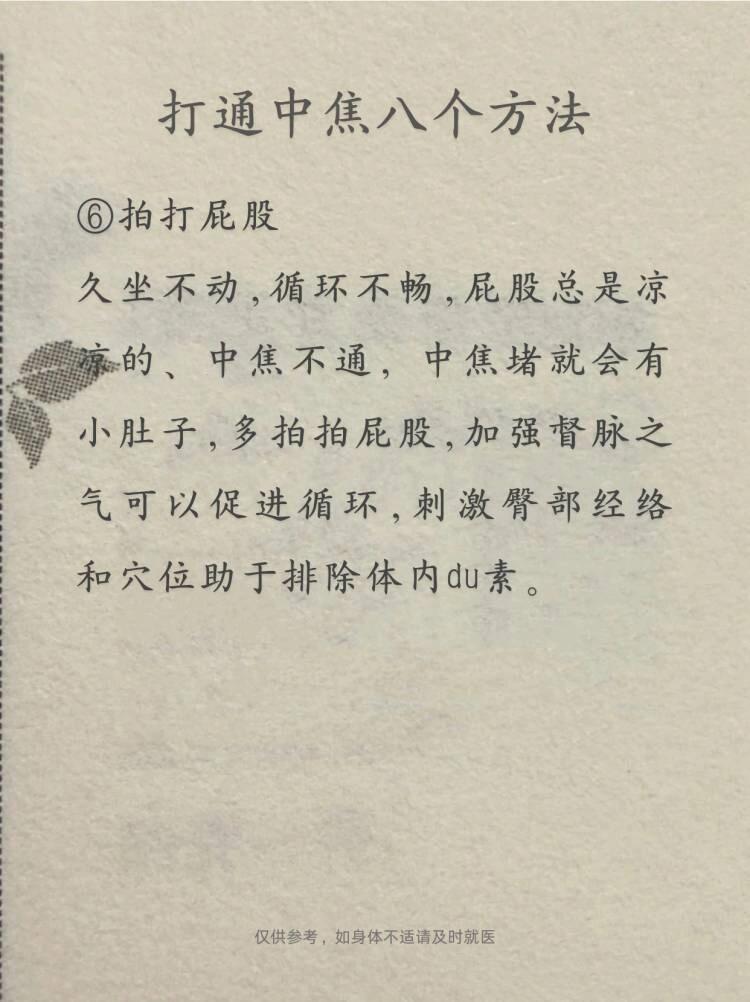 打通中焦八个方法
⑥拍打屁股
久坐不动,循环不畅,屁股总是凉
凉的、中焦不通，中焦堵就会有
小肚子,多拍拍屁股,加强督脉之
气可以促进循环,刺激臀部经络
和穴位助于排除体内du素。
仅供参考，如身体不适请及时就医